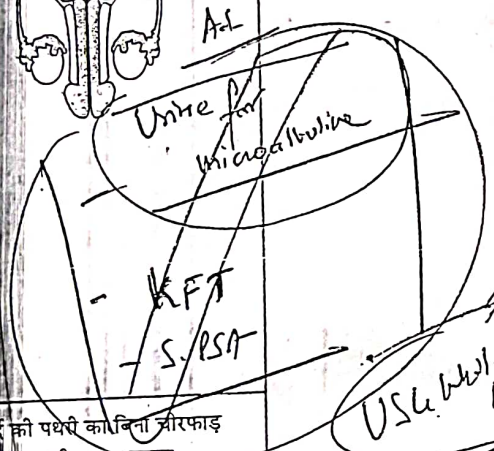 Urine for
microalbumine
- KFT
- S. PSA
USG Whol
की पथरी का बिना चीरफाड़